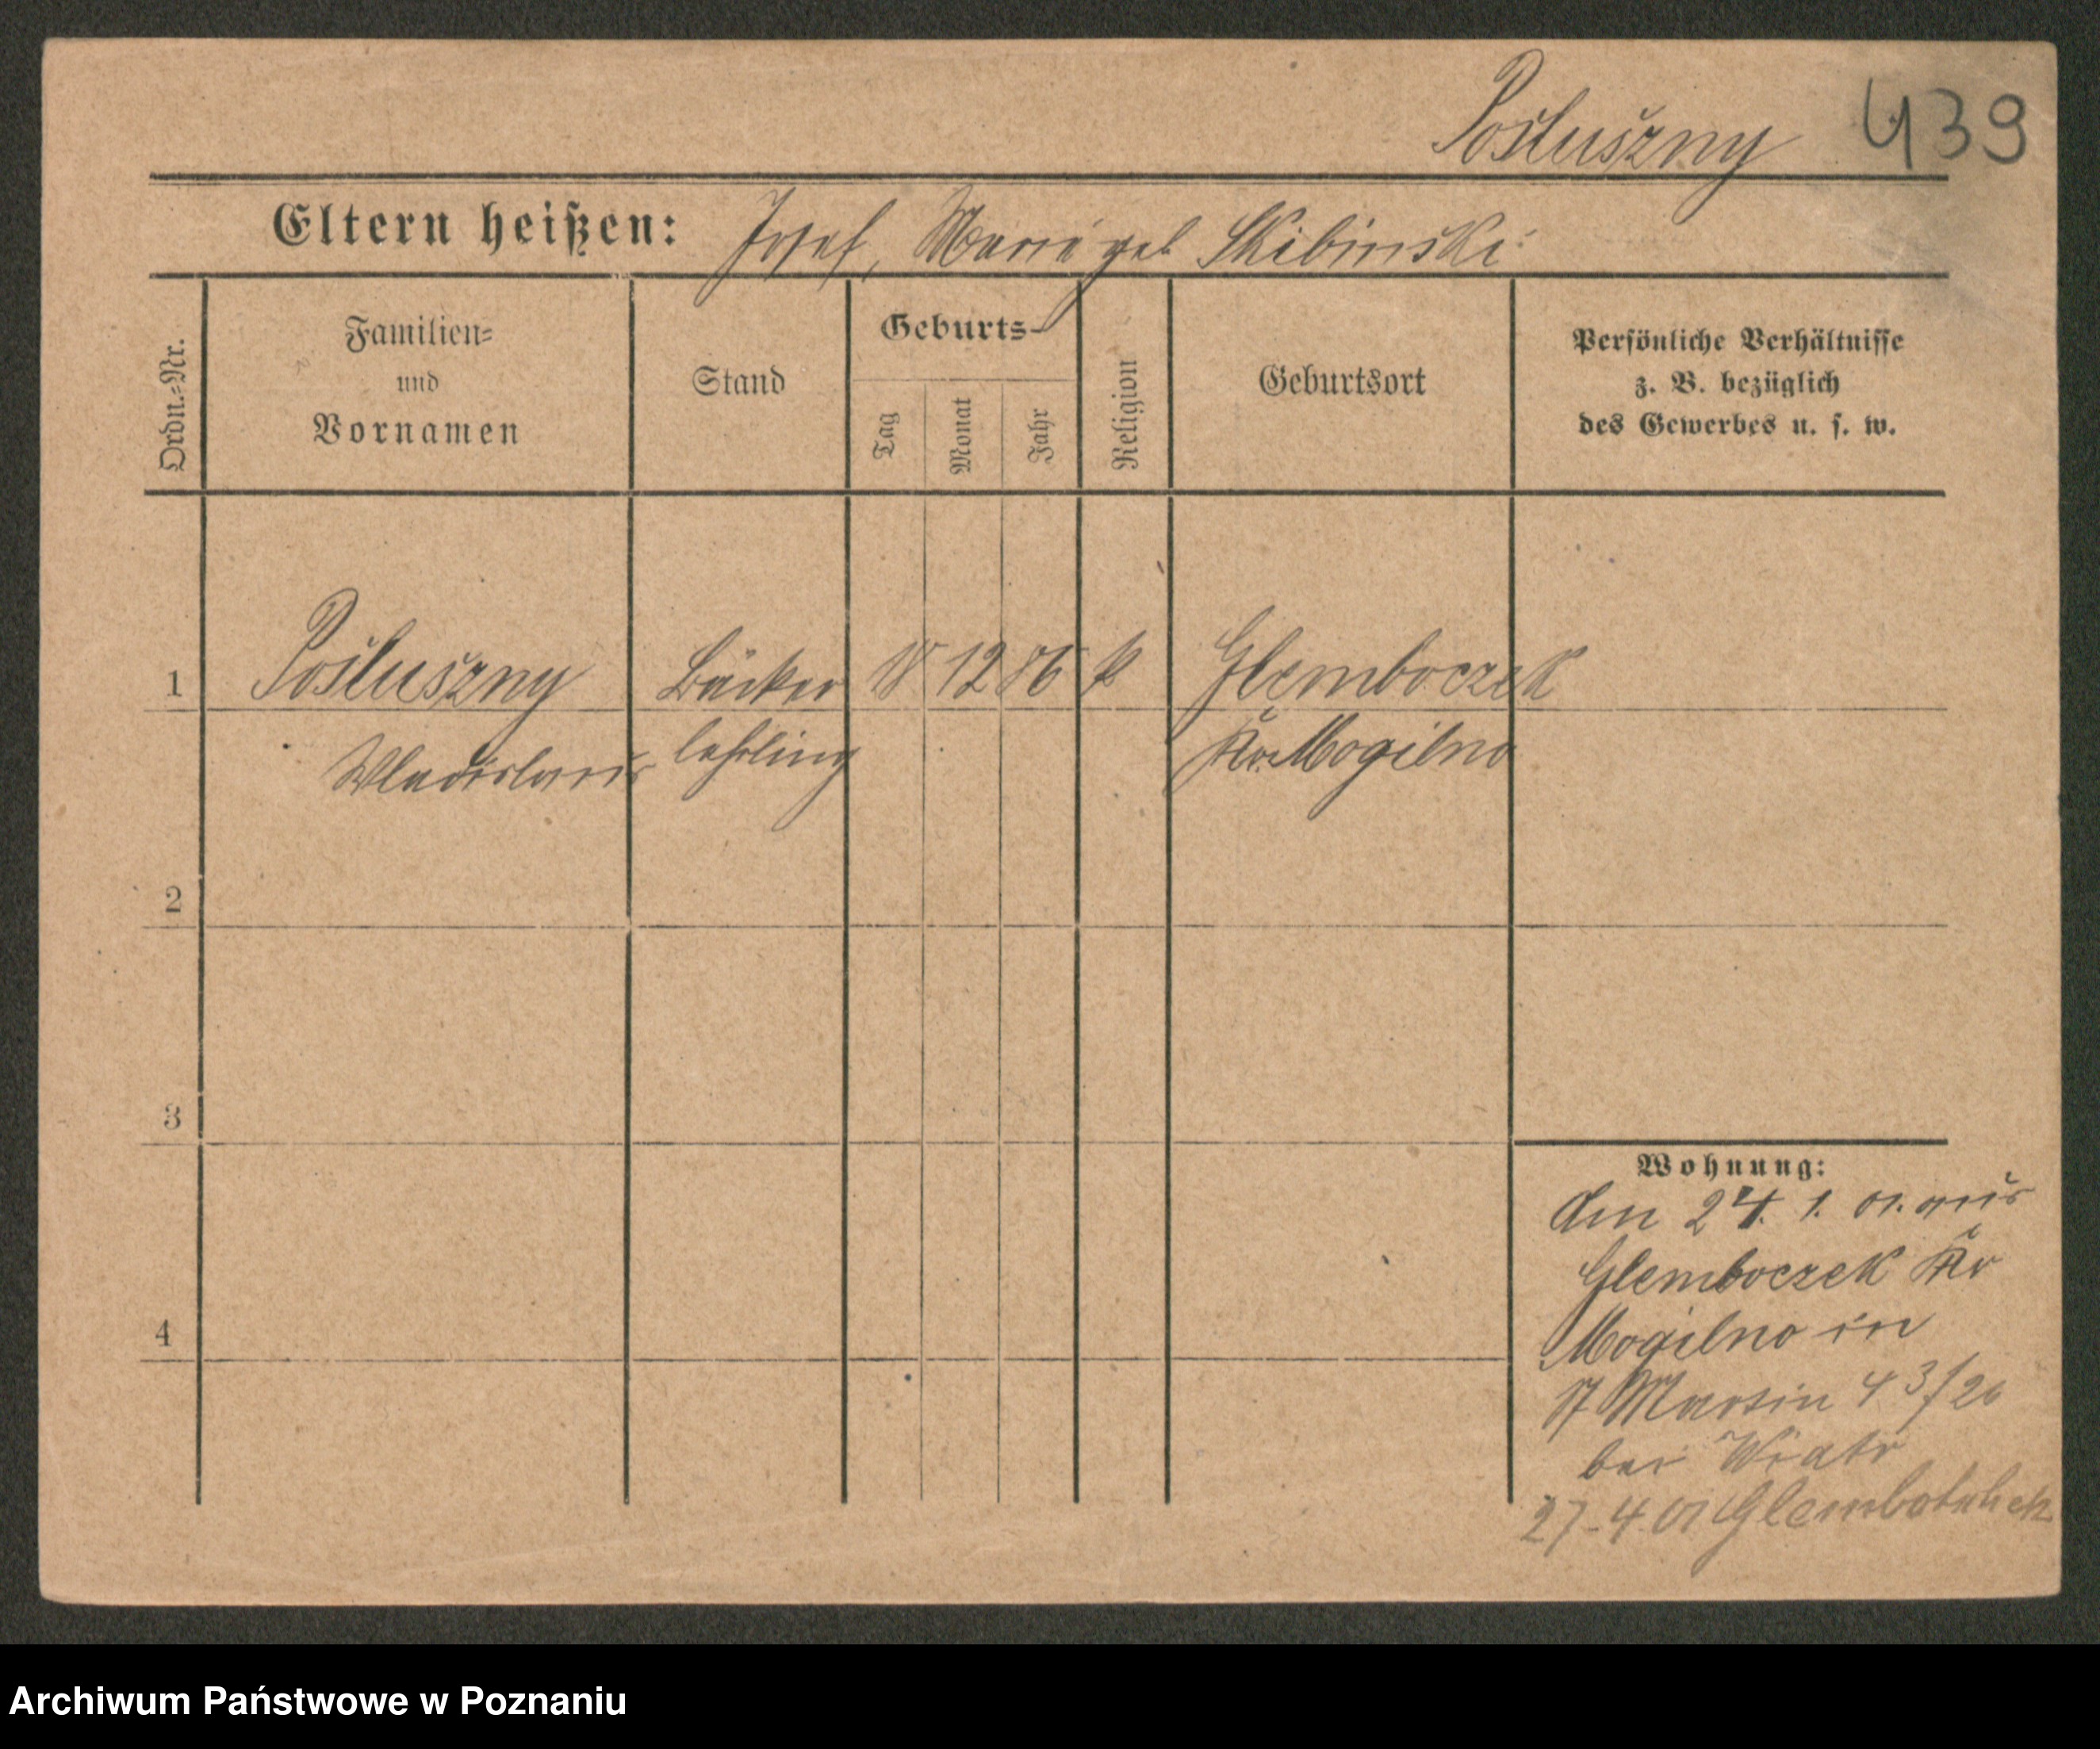 Pošlušzny 439
Eltern heißen: Josef, Maria geb Skibinski
Ordn.=Nr.
Familien=
und
Vornamen
Stand
Geburts-
Tag
Monat
Jahr
Religion
Geburtsort
Persönliche Verhältnisse
z. B. bezüglich
des Gewerbes u. s. w.
1 Pošlušzny Bäcker 18 12 86 k Glemboczek
Wladislaus lehrling Kr. Mogilno
2
3
4
Wohnung:
Am 24. 1. 01. aus
Glemboczek Kr
Mogilno in
St Martin 43/26
bei Wiatr
27-4.01